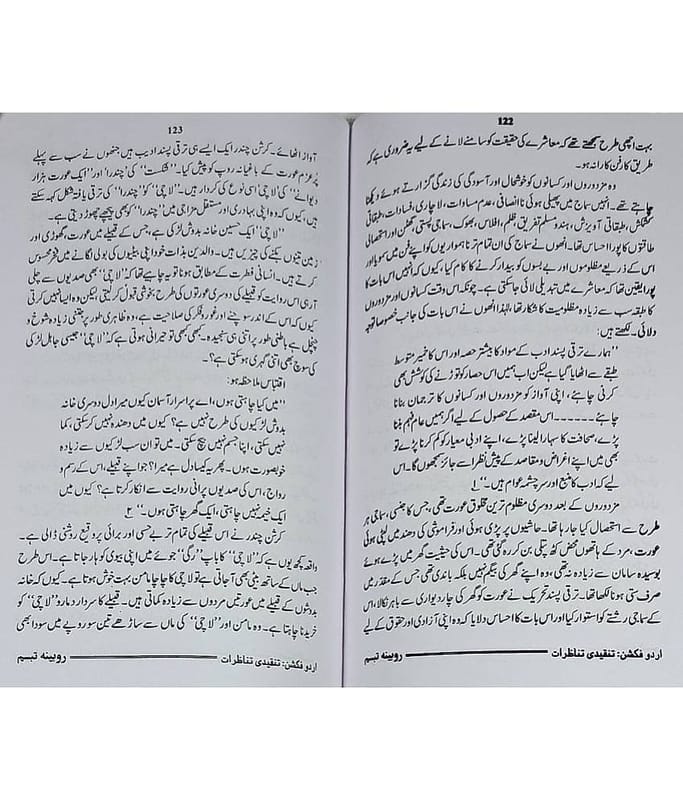 122
بہت اچھی طرح سمجھتے تھے کہ معاشرے کی حقیقت کو سامنے لانے کے لیے یہ ضروری ہے کہ
طریق کا فن کارانہ ہو۔
وہ مزدوروں اور کسانوں کو خوشحال اور آسودگی کی زندگی گزارتے ہوئے دیکھنا
چاہتے تھے۔ انہیں سماج میں پھیلی ہوئی نا انصافی، عدم مساوات، لا چاری، فسادات، طبقاتی
کشمکش، طبقاتی آویزش، ہندو مسلم تفریق، ظلم، افلاس، بھوک، سماجی پستی، گھٹن اور استحصالی
طاقتوں کا پورا احساس تھا۔ انھوں نے سماج کی ان تمام تر ناہمواریوں کو اپنے فن میں سمویا اور
اس کے ذریعے مظلوموں اور بے بسوں کو بیدار کرنے کا کام کیا، کیوں کہ انہیں اس بات کا
پورا یقین تھا کہ معاشرے میں تبدیلی لائی جا سکتی ہے۔ چونکہ اس وقت کسانوں اور مزدوروں
کا طبقہ سب سے زیادہ مظلومیت کا شکار تھا، لہٰذا انھوں نے اس بات کی جانب خصوصاً توجہ
دلائی۔ لکھتے ہیں:
"ہمارے ترقی پسند ادب کے مواد کا بیشتر حصہ اور اس کا خمیر متوسط
طبقے سے اٹھایا گیا ہے لیکن اب ہمیں اس حصار کو توڑنے کی کوشش بھی
کرنی چاہئے، اپنی آواز کو مزدوروں اور کسانوں کا ترجمان بنانا
چاہئے۔۔۔۔۔۔ اس مقصد کے حصول کے لیے اگر ہمیں عام فہم بننا
پڑے، صحافت کا سہارا لینا پڑے، اپنے ادبی معیار کو کم کرنا پڑے تو
بھی میں اپنے اغراض و مقاصد کے پیش نظر اسے جائز سمجھوں گا۔ اس
لیے کہ ادب کا منبع اور سرچشمہ عوام ہیں۔" ۱
مزدوروں کے بعد دوسری مظلوم ترین مخلوق عورت تھی، جس کا جنسی، سماجی ہر
طرح سے استحصال کیا جا رہا تھا۔ حاشیوں پر پڑی ہوئی اور فراموشی کی دھند میں لپٹی ہوئی
عورت، مرد کے ہاتھوں محض کٹھ پتلی بن کر رہ گئی تھی۔ اس کی حیثیت گھر میں پڑے ہوئے
بوسیدہ سامان سے زیادہ نہ تھی، وہ اپنے گھر کی بیگم نہیں بلکہ باندی تھی جس کے مقدر میں
صرف ستی ہونا لکھا تھا۔ ترقی پسند تحریک نے عورت کو گھر کی چار دیواری سے باہر نکالا، اس
کے سماجی رشتے کو استوار کیا اور اس بات کا احساس دلایا کہ وہ اپنی آزادی اور حقوق کے لیے
اردو فکشن: تنقیدی تناظرات ——— روبینہ تبسم
123
آواز اٹھائے۔ کرشن چندر ایک ایسے ہی ترقی پسند ادیب ہیں جنھوں نے سب سے پہلے
پُر عزم عورت کے باغیانہ روپ کو پیش کیا۔ "شکست" کی 'چندرا' اور 'ایک عورت ہزار
دیوانے' کی 'لاچی' اسی نوع کی کردار ہیں۔ "لاچی" کو "چندرا" کی ترقی یافتہ شکل کہہ سکتے
ہیں، کیوں کہ وہ اپنی بہادری اور مستقل مزاجی میں 'چندرا' کو بھی پیچھے چھوڑ دیتی ہے۔
"لاچی" ایک حسین خانہ بدوش لڑکی ہے، جس کے قبیلے میں عورت، گھوڑی اور
زمین تینوں بکنے کی چیزیں ہیں۔ والدین بذات خود اپنی بیٹیوں کی بولی لگانے میں فخر محسوس
کرتے ہیں۔ انسانی فطرت کے مطابق ہونا تو یہ چاہئے تھا کہ "لاچی" بھی صدیوں سے چلی
آ رہی اس روایت کو قبیلے کی دوسری عورتوں کی طرح بخوشی قبول کر لیتی لیکن وہ ایسا نہیں کرتی
کیوں کہ اس کے اندر سوچنے اور غور و فکر کی صلاحیت ہے، وہ ظاہری طور پر جتنی زیادہ شوخ و
چنچل ہے باطنی طور پر اتنی ہی سنجیدہ۔ کبھی کبھی تو حیرانی ہوتی ہے کہ "لاچی" جیسی جاہل لڑکی
کی سوچ بھی اتنی گہری ہو سکتی ہے؟۔
اقتباس ملاحظہ ہو:
"میں کیا چاہتی ہوں، اے پر اسرار آسمان کیوں میرا دل دوسری خانہ
بدوش لڑکیوں کی طرح نہیں ہے؟ کیوں میں دھندہ نہیں کر سکتی، کما
نہیں سکتی، اپنا جسم نہیں بیچ سکتی۔ میں تو ان سب لڑکیوں سے زیادہ
خوبصورت ہوں۔ پھر یہ کیسا دل ہے میرا؟ جو اپنے قبیلے، اس کے رسم و
رواج، اس کی صدیوں پرانی روایت سے انکار کرتا ہے؟ کیوں میں
ایک خیمہ نہیں چاہتی، ایک گھر چاہتی ہوں؟" ۲
کرشن چندر نے اس قبیلے کی تمام تر بے حسی اور برائی پر وقیع روشنی ڈالی ہے۔
واقعہ کچھ یوں ہے کہ "لاچی" کا باپ "رگی" جوئے میں اپنی بیوی کو ہار جاتا ہے۔ اس طرح
جب ماں کے ساتھ بیٹی بھی آ جاتی ہے تو لاچی کا چاچا مامن بہت خوش ہوتا ہے۔ کیوں کہ خانہ
بدوشوں کے قبیلے میں عورتیں مردوں سے زیادہ کماتی ہیں۔ قبیلے کا سردار دمارو "لاچی" کو
خریدنا چاہتا ہے۔ وہ مامن اور "لاچی" کی ماں سے ساڑھے تین سو روپے میں سودا بھی
اردو فکشن: تنقیدی تناظرات ——— روبینہ تبسم